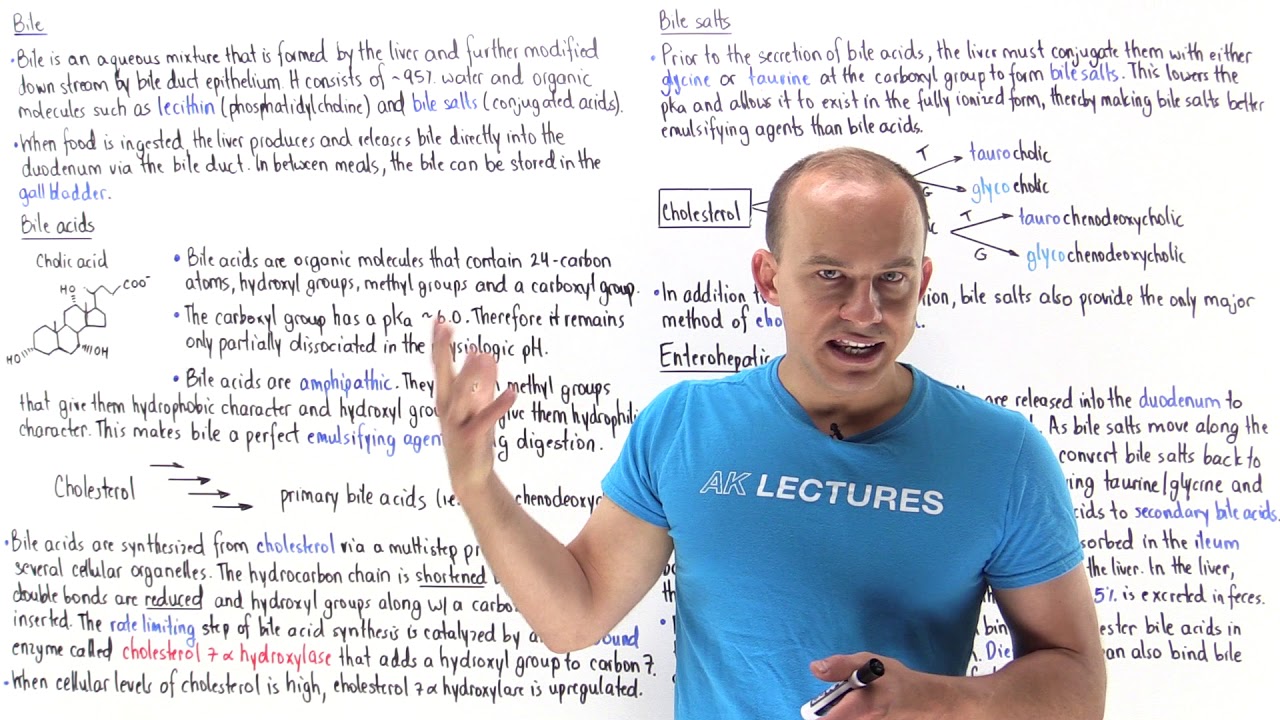 Bile
• Bile is an aqueous mixture that is formed by the liver and further modified
down stream by bile duct epithelium. It consists of ~95% water and organic
molecules such as lecithin (phosmatidylcholine) and bile salts (conjugated acids).
• When food is ingested, the liver produces and releases bile directly into the
duodenum via the bile duct. In between meals, the bile can be stored in the
gall bladder.
Bile acids
Cholic acid
HO
COO⁻
HO
OH
• Bile acids are organic molecules that contain 24-carbon
atoms, hydroxyl groups, methyl groups and a carboxyl group.
• The carboxyl group has a pka ~6.0. Therefore it remains
only partially dissociated in the physiologic pH.
• Bile acids are amphipathic. They methyl groups
that give them hydrophobic character and hydroxyl give them
character. This makes bile a perfect emulsifying agent digestion.
Cholesterol
primary bile acids (i.e. chenodeoxy
• Bile acids are synthesized from cholesterol via a multistep
several cellular organelles. The hydrocarbon chain is shortened
double bonds are reduced and hydroxyl groups along w/ a
inserted. The rate limiting step of bile acid synthesis is catalyzed by
enzyme called cholesterol 7 α hydroxylase that adds a hydroxyl group to carbon 7.
• When cellular levels of cholesterol is high, cholesterol 7 α hydroxylase is upregulated.
Bile salts
• Prior to the secretion of bile acids, the liver must conjugate them with either
glycine or taurine at the carboxyl group to form bile salts. This lowers the
pka and allows it to exist in the fully ionized form, thereby making bile salts better
emulsifying agents than bile acids.
Cholesterol
T
taurocholic
G
glycocholic
T
taurochenodeoxycholic
G
glycochenodeoxycholic
• In addition bile salts also provide the only major
method of
Enterohepatic
are released into the duodenum to
As bile salts move along the
convert bile salts back to
taurine/glycine and
to secondary bile acids.
in the ileum
the liver. In the liver,
5% is excreted in feces.
bile acids in
can also bind bile
AK LECTURES